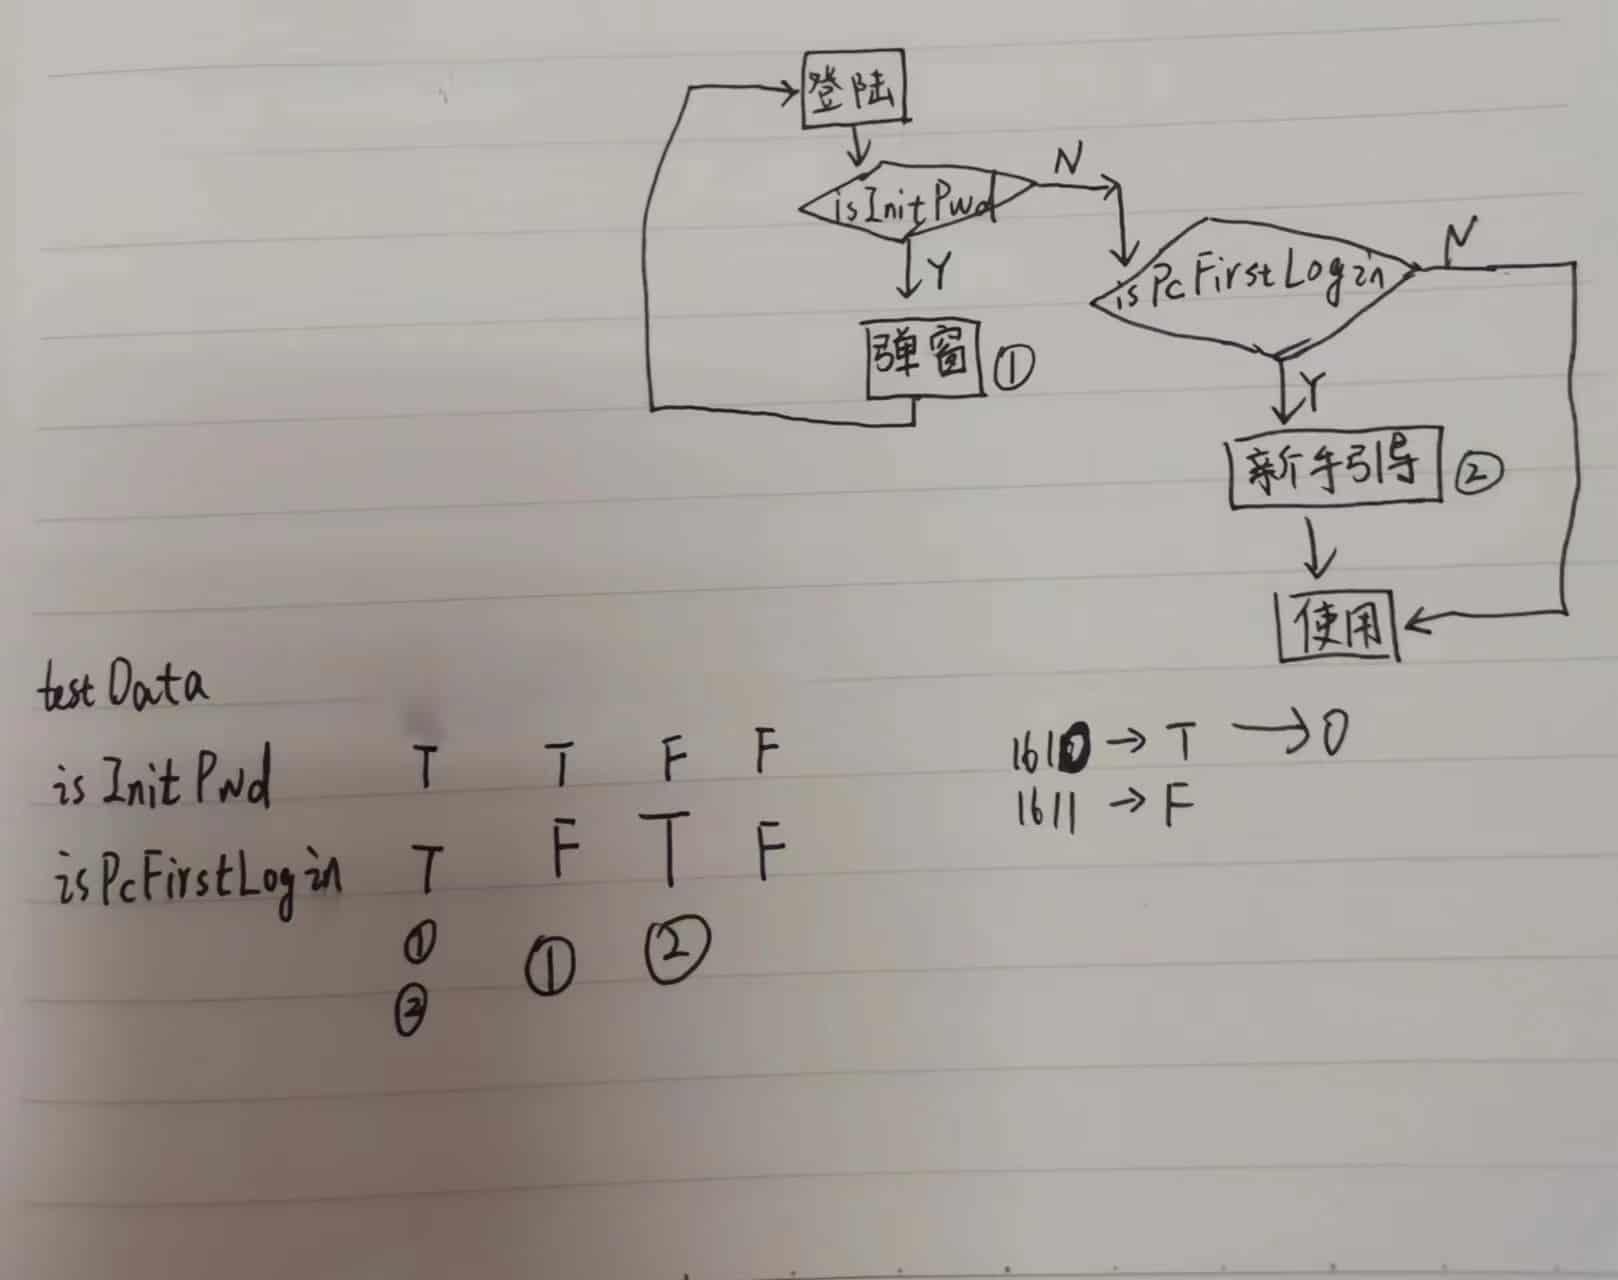 登陆
isInitPwd N
Y
弹窗 ①
isPcFirstLogin N
Y
新手引导 ②
使用
testData
isInitPwd T T F F
isPcFirstLogin T F T F
① ① ②
②
1610 → T → 0
1611 → F